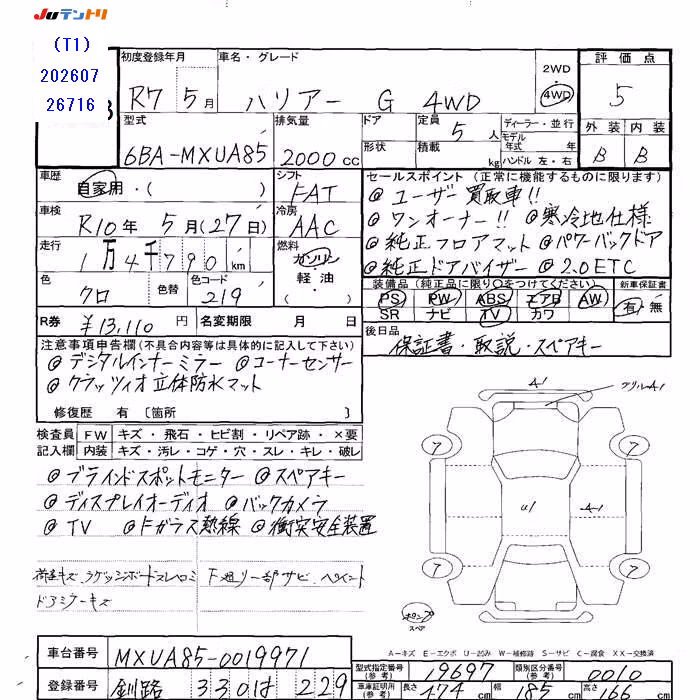 JUテントリ
(T1)
202607
26716
初度登録年月 R7 5月
車名・グレード ハリアー G 4WD
2WD
4WD
評価点 5
外装 内装
B B
型式 6BA-MXUA85
排気量 2000cc
ドア 形状
定員 5人
積載 kg
ディーラー・並行
モデル年式 年式
ハンドル 左・右
車歴 自家用・( )
シフト FAT
車検 R10年 5月(27日)
冷房 AAC
走行 1万4千790km
燃料 ガソリン 軽油 ( )
色 クロ 色替 色コード 219
R券 ¥13,110円 名変期限 月 日
セールスポイント (正常に機能するものに限ります)
@ユーザー買取車!!
@ワンオーナー!! @寒冷地仕様
@純正フロアマット @パワーバックドア
@純正ドアバイザー @2.0ETC
装備品(純正品に限り○をつけてください) 新車保証書
PS PW ABS エアB AW 有・無
SR ナビ TV カワ
後日品 保証書・取説・スペアキー
注意事項申告欄(不具合内容等は具体的に記入して下さい)
@デジタルインナーミラー @コーナーセンサー
@クラッツィオ立体防水マット
修復歴 有 〔箇所 〕
検査員記入欄 FW キズ・飛石・ヒビ割・リペア跡・×要
内装 キズ・汚レ・コゲ・穴・スレ・キレ・破レ
@ブラインドスポットモニター @スペアキー
@ディスプレイオーディオ @バックカメラ
@TV @Fガラス熱線 @衝突安全装置
下廻リ一部サビ、ヘッドライト
ドアミラーキズ
A1
グリルA1
7
7
U1
A1
7
7
スペア
A-キズ E-エクボ U-凹み W-補修跡 S-サビ C-腐食 XX-交換済
車台番号 MXUA85-0019971
型式指定番号(参考) 19697 類別区分番号(参考) 0010
登録番号 釧路 330は 229
車庫証明用(参考) 長さ 474cm 幅 185cm 高さ 166cm